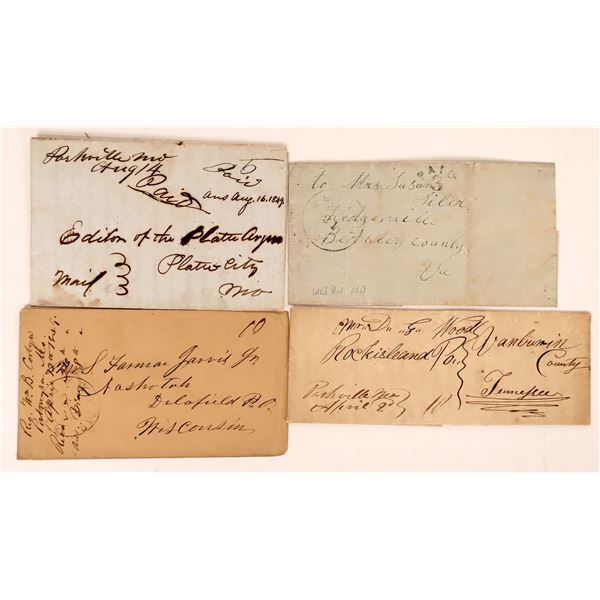 Parkville Mo
Aug 14
Paid
6
Paid
ans Aug. 16. 1849
Editor of the Platte Argus
Platte City
Mail
Mo
PAID
3
to Mrs Susan
Siler
Hedgesville
Berkley County
Va
WESTON MO
10
S. Farmar Jarvis Jr.
Nashotah
Delafield P.O.
Wisconsin
Rev. Wm B. Corbyn
Palmyra Mo.
Mr. D. "G" Wood
Rockisleand Po.
Vanburin
County
Tennessee
Parkville Mo
April 2d
10